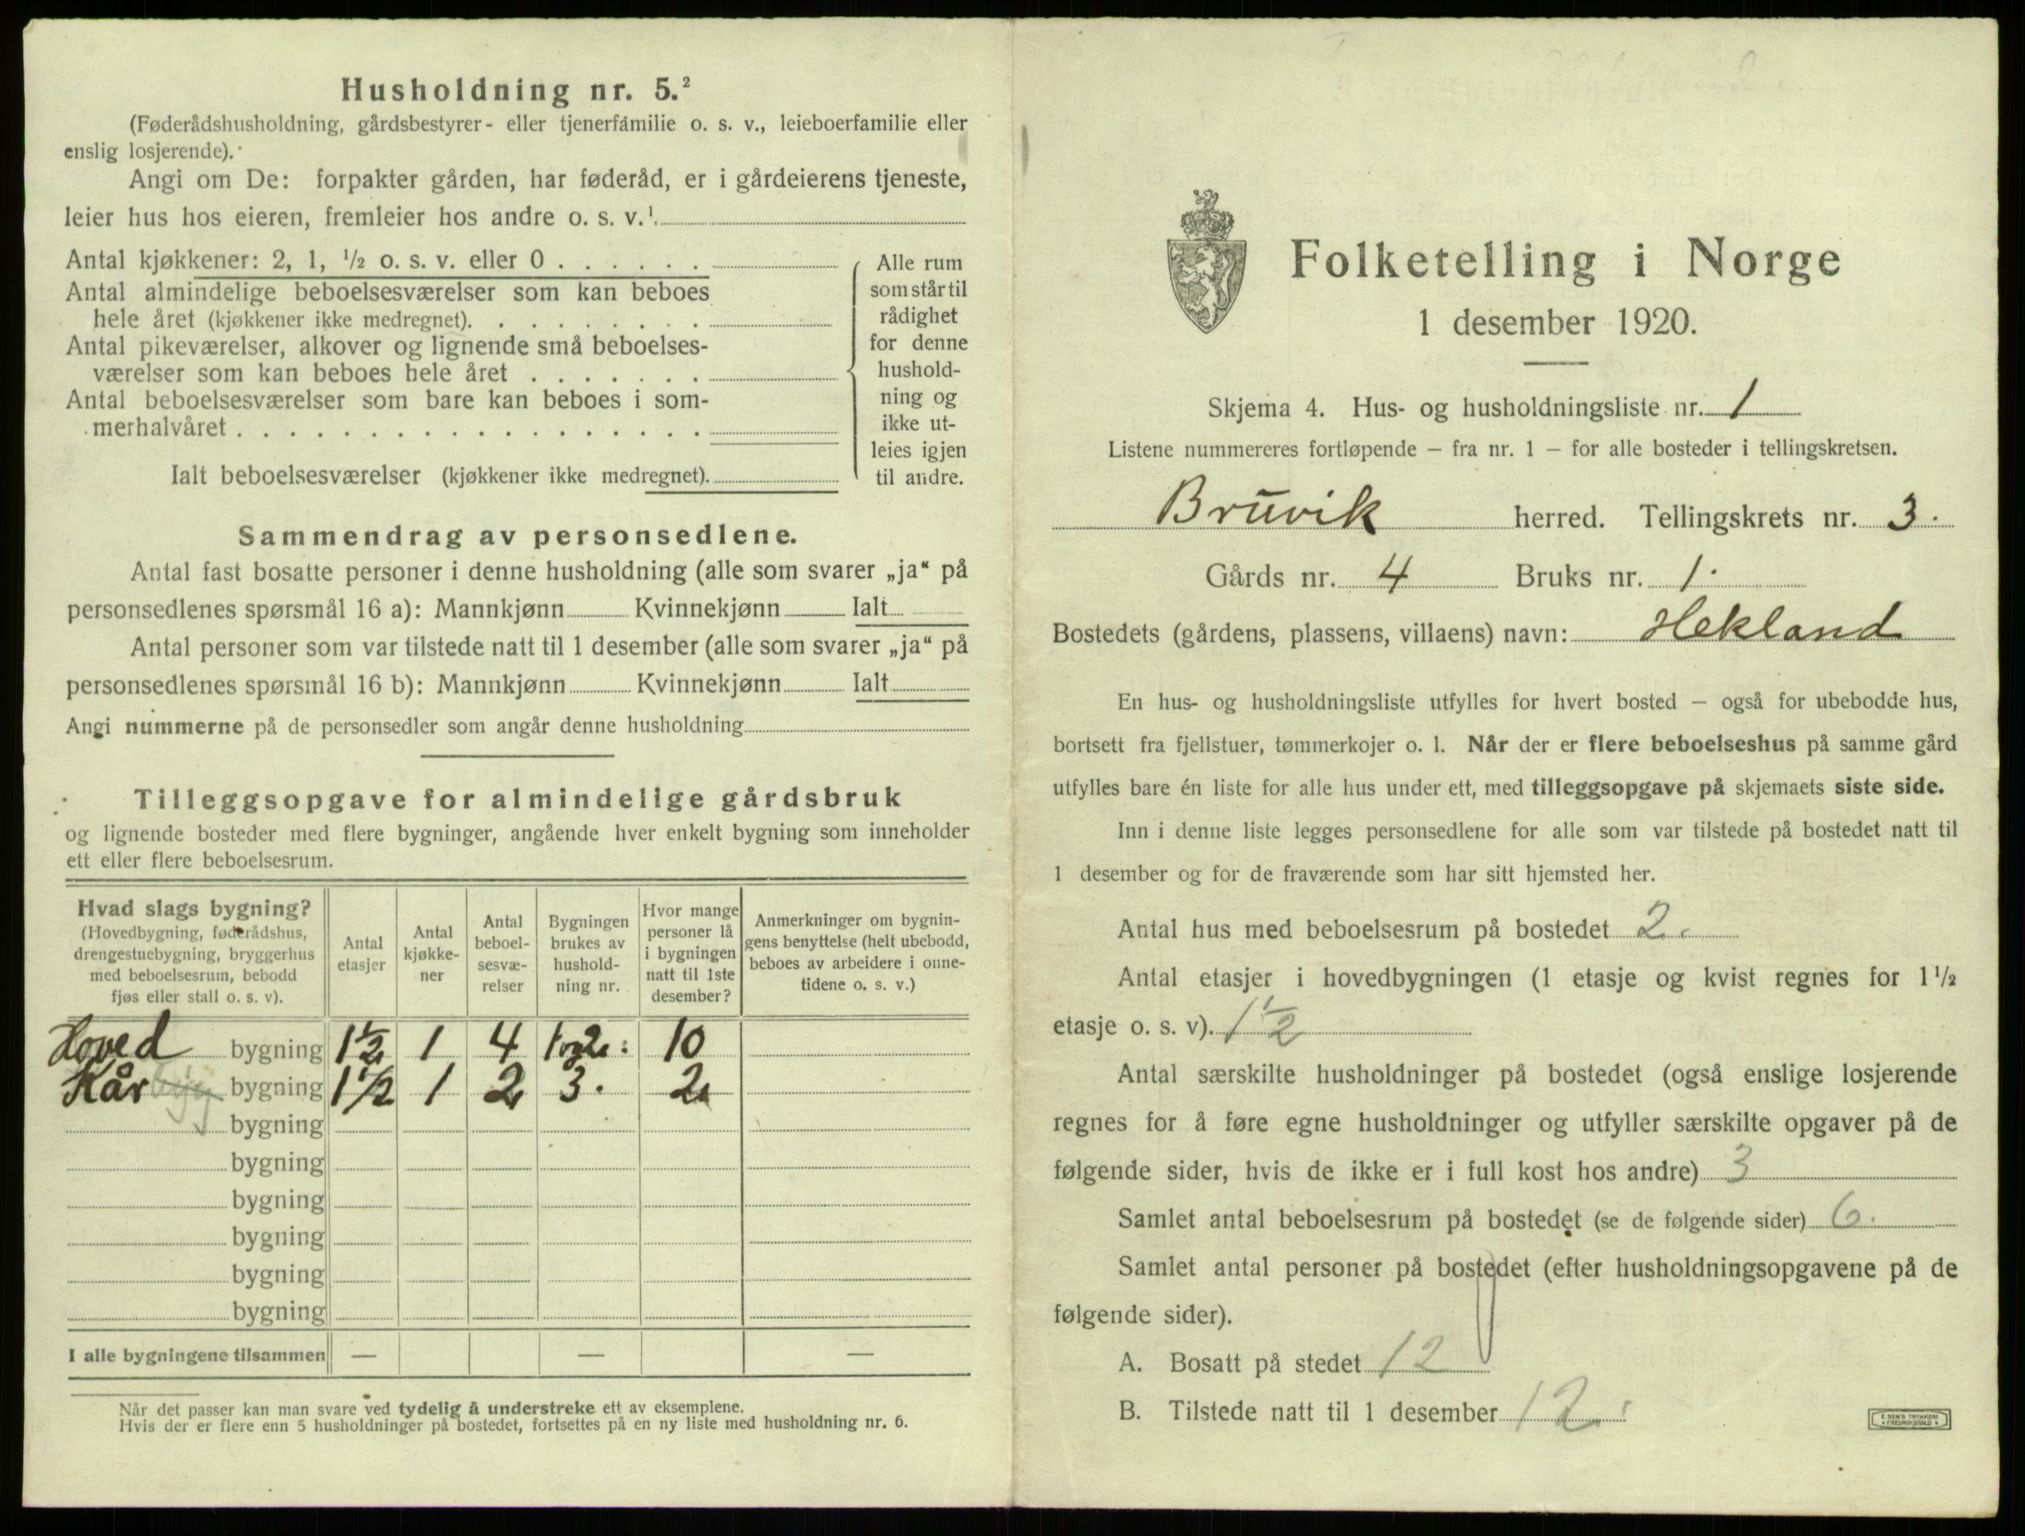 Husholdning nr. 5.²
(Føderådshusholdning, gårdsbestyrer- eller tjenerfamilie o. s. v., leieboerfamilie eller
enslig losjerende).
Angi om De: forpakter gården, har føderåd, er i gårdeierens tjeneste,
leier hus hos eieren, fremleier hos andre o. s. v.¹
Antal kjøkkener: 2, 1, ½ o. s. v. eller 0 . . . . . .
Antal almindelige beboelsesværelser som kan beboes
hele året (kjøkkener ikke medregnet). . . . . . . . .
Antal pikeværelser, alkover og lignende små beboelses-
værelser som kan beboes hele året . . . . . . .
Antal beboelsesværelser som bare kan beboes i som-
merhalvåret . . . . . . . . . . . . . . . . . .
Ialt beboelsesværelser (kjøkkener ikke medregnet).
Alle rum
som står til
rådighet
for denne
hushold-
ning og
ikke ut-
leies igjen
til andre.
Sammendrag av personsedlene.
Antal fast bosatte personer i denne husholdning (alle som svarer „ja“ på
personsedlenes spørsmål 16 a): Mannkjønn Kvinnekjønn Ialt
Antal personer som var tilstede natt til 1 desember (alle som svarer „ja“ på
personsedlenes spørsmål 16 b): Mannkjønn Kvinnekjønn Ialt
Angi nummerne på de personsedler som angår denne husholdning
Tilleggsopgave for almindelige gårdsbruk
og lignende bosteder med flere bygninger, angående hver enkelt bygning som inneholder
ett eller flere beboelsesrum.
Hvad slags bygning?
(Hovedbygning, føderådshus,
drengestuebygning, bryggerhus
med beboelsesrum, bebodd
fjøs eller stall o. s. v).
Antal
etasjer
Antal
kjøkke-
ner
Antal
beboel-
sesvæ-
relser
Bygningen
brukes av
hushold-
ning nr.
Hvor mange
personer lå
i bygningen
natt til 1ste
desember?
Anmerkninger om bygnin-
gens benyttelse (helt ubebodd,
beboes av arbeidere i onne-
tidene o. s. v.)
Hoved bygning 1½ 1 4 1 og 2. 10
Kår byg bygning 1½ 1 2 3. 2
bygning
bygning
bygning
bygning
bygning
bygning
I alle bygningene tilsammen — — —
Når det passer kan man svare ved tydelig å understreke ett av eksemplene.
Hvis der er flere enn 5 husholdninger på bostedet, fortsettes på en ny liste med husholdning nr. 6.
Folketelling i Norge
1 desember 1920.
Skjema 4. Hus- og husholdningsliste nr. 1
Listene nummereres fortløpende — fra nr. 1 — for alle bosteder i tellingskretsen.
Bruvik herred. Tellingskrets nr. 3.
Gårds nr. 4 Bruks nr. 1.
Bostedets (gårdens, plassens, villaens) navn: Hekland
En hus- og husholdningsliste utfylles for hvert bosted — også for ubebodde hus,
bortsett fra fjellstuer, tømmerkojer o. l. Når der er flere beboelseshus på samme gård
utfylles bare én liste for alle hus under ett, med tilleggsopgave på skjemaets siste side.
Inn i denne liste legges personsedlene for alle som var tilstede på bostedet natt til
1 desember og for de fraværende som har sitt hjemsted her.
Antal hus med beboelsesrum på bostedet 2.
Antal etasjer i hovedbygningen (1 etasje og kvist regnes for 1½
etasje o. s. v). 1½
Antal særskilte husholdninger på bostedet (også enslige losjerende
regnes for å føre egne husholdninger og utfyller særskilte opgaver på de
følgende sider, hvis de ikke er i full kost hos andre) 3
Samlet antal beboelsesrum på bostedet (se de følgende sider) 6.
Samlet antal personer på bostedet (efter husholdningsopgavene på de
følgende sider).
A. Bosatt på stedet 12
B. Tilstede natt til 1 desember 12.
E. SEM'S TRYKKERI
FREDRIKSHALD